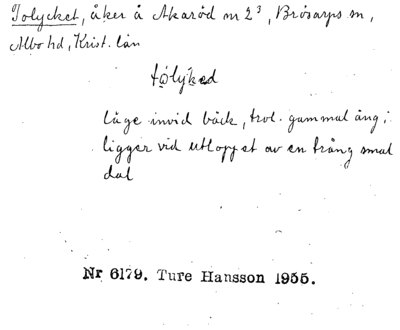 Tolycket, åker å Akaröd nr 2³, Brösarps sn,
Albo hd, Krist. län
tólykəd
läge invid bäck, trol. gammal äng;
ligger vid utloppet av en trång smal
dal
Nr 6179. Ture Hansson 1955.